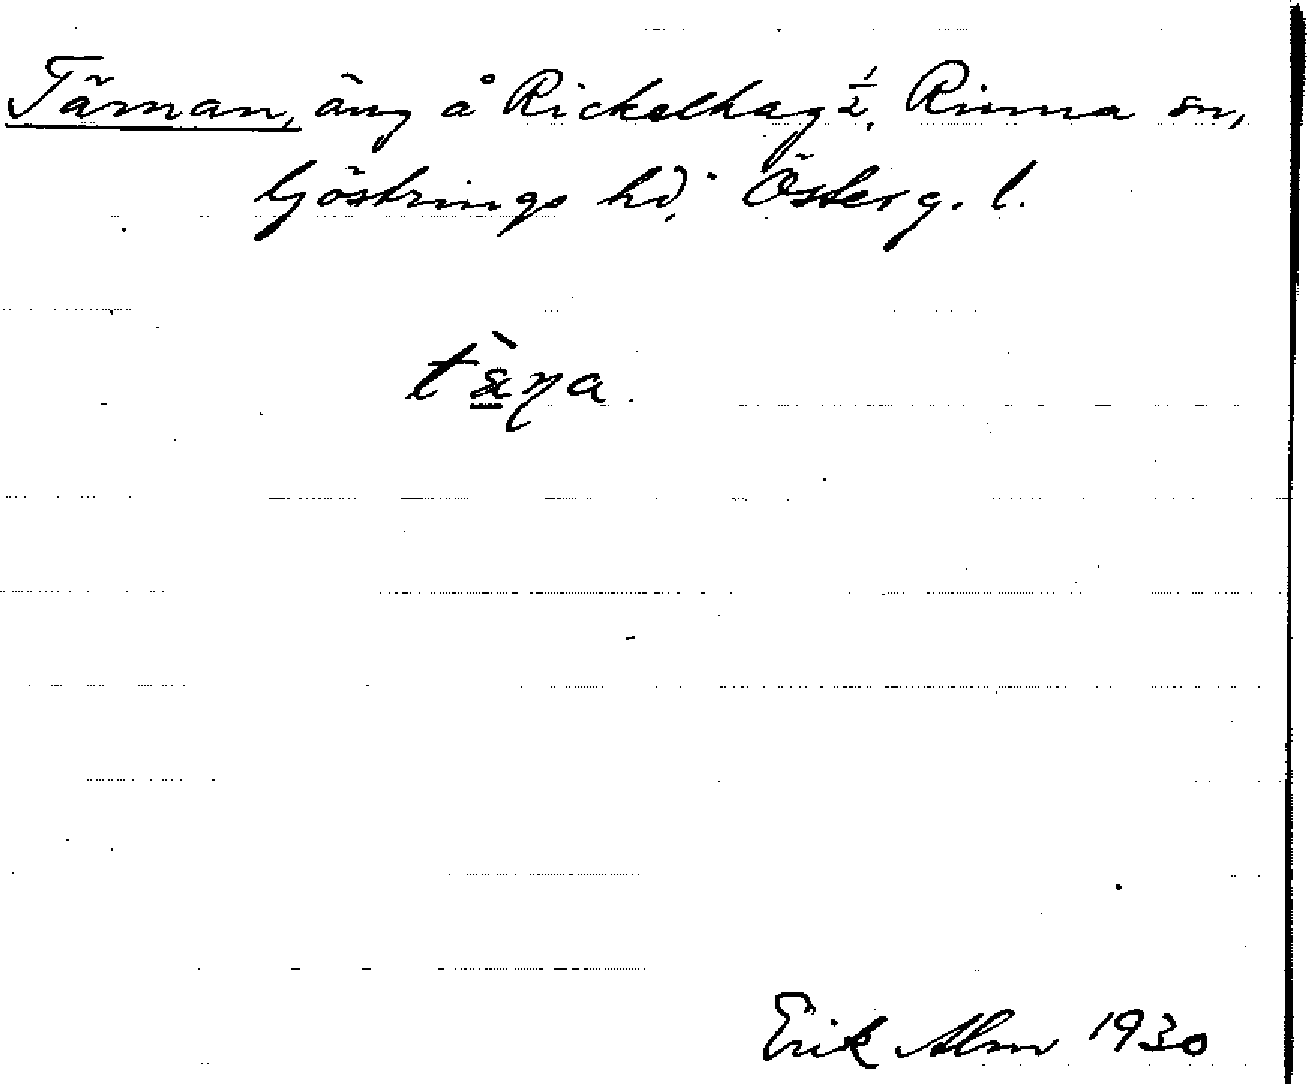 Tärnan, äng å Rickelhag 1/2, Rinna sn,
Göstrings hd, Österg. l.
tæ̀ɳa.
Erik Alm 1930